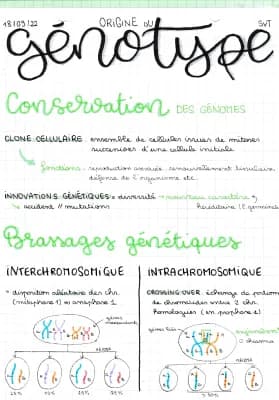 13/09/22 ORIGINE DU SVT
génotype
Conservation DES GÉNOMES
CLONE CELLULAIRE : ensemble de cellules issues de mitoses
successives d'une cellule initiale
fonctions : reproduction asexuée, renouvellement tissulaire,
défense de l'organisme etc.
INNOVATIONS GÉNÉTIQUES = diversité → nouveau caractère →
accident // mutations héréditaire (C germinales)
Brassages génétiques
INTERCHROMOSOMIQUE
= disposition aléatoire des chr.
(métaphase 1) = anaphase 1
gènes indépendants
MÉIOSE
25% 25% 25% 25%
INTRACHROMOSOMIQUE
CROSSING-OVER : échange de portions
de chromatides entre 2 chr.
homologues (en prophase 1)
gènes liés
chiasma
MÉIOSE